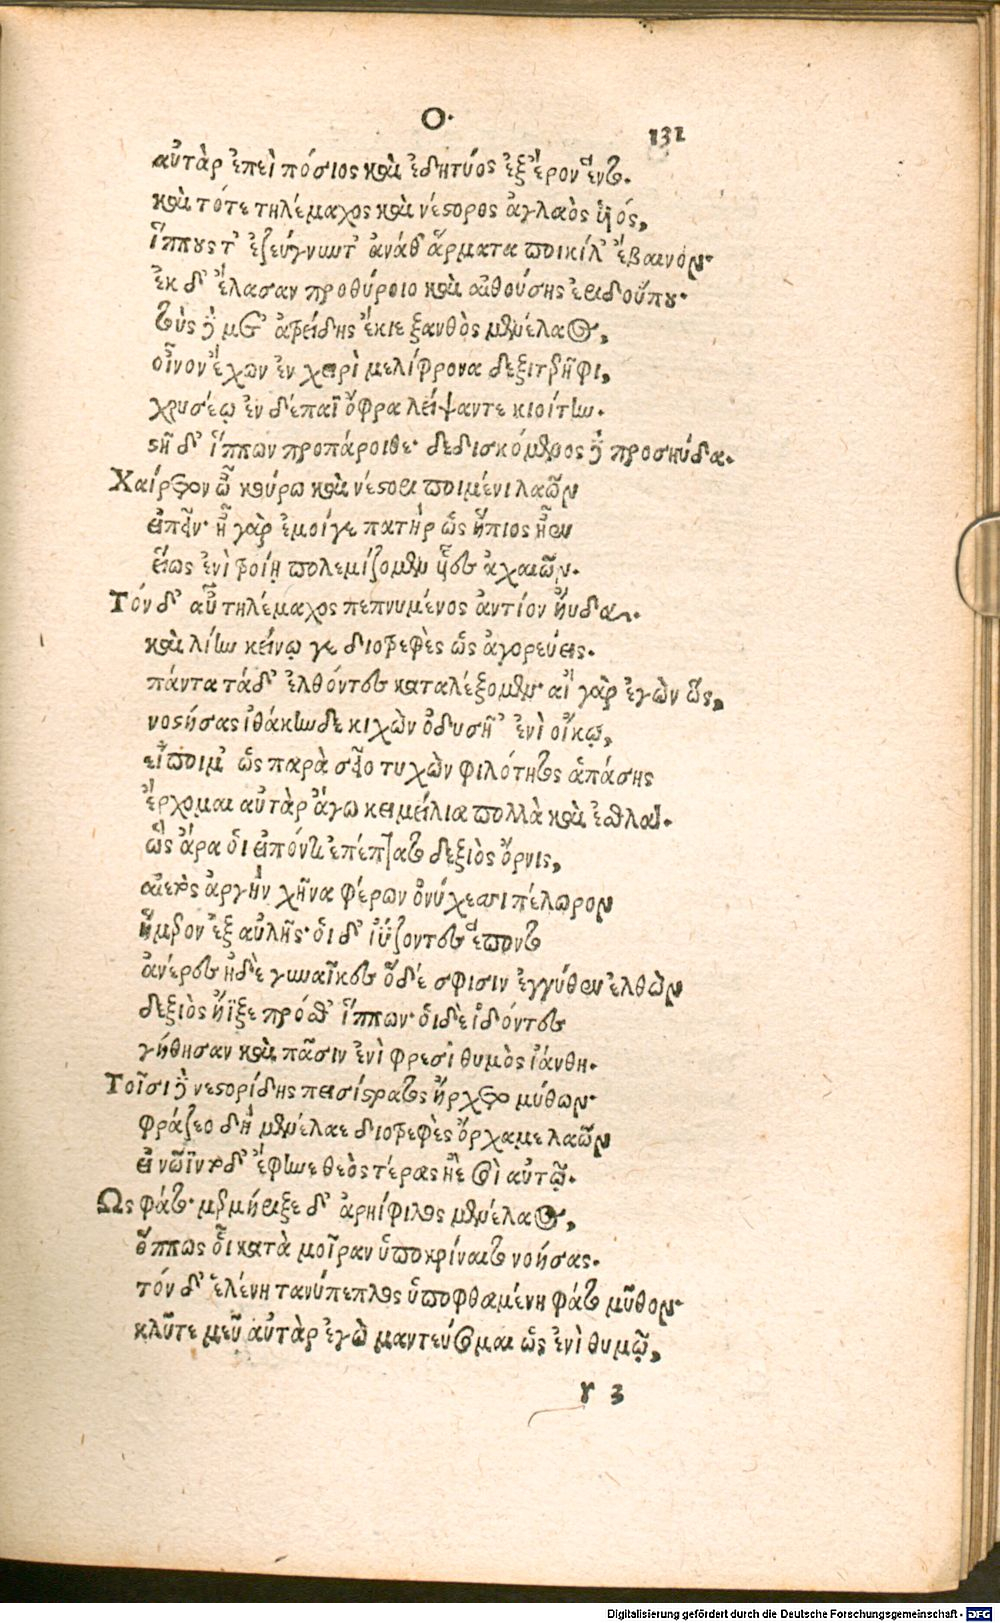 Ο.
131
αὐτὰρ ἐπεὶ πόσιος καὶ ἐδητύος ἐξ ἔρον ἕντο.
καὶ τότε τηλέμαχος καὶ νέστορος ἀγλαὸς ἱἡός,
ἵππους τ' ἐζεύγνυντ' ἀνά θ' ἅρματα ποικίλ' ἔβαινον·
ἐκ δ' ἔλασαν προθύροιο καὶ αἰθούσης ἐριδούπου.
τοὺς δὲ μετ' ἀτρείδης ἔκιε ξανθὸς μενέλαος,
οἶνον ἔχων ἐν χειρὶ μελίφρονα δεξιτερῆφι,
χρυσέῳ ἐν δέπαϊ ὄφρα λείψαντε κιοίτην.
στῆ δ' ἵππων προπάροιθε· δεδισκόμενος δὲ προσηύδα.
Χαίρετον ὦ κούρω καὶ νέστορι ποιμένι λαῶν
εἰπεῖν· ἦ γὰρ ἐμοίγε πατὴρ ὣς ἤπιος ἦεν
εἵως ἐνὶ τροίῃ πολεμίζομεν ἷες ἀχαιῶν.
Τόν δ' αὖ τηλέμαχος πεπνυμένος ἀντίον ηὔδα.
καὶ λίην κείνῳ γε διοτρεφὲς ὡς ἀγορεύεις.
πάντα τάδ' ἐλθόντες καταλέξομεν· αἲ γὰρ ἐγὼν ὣς,
νοστήσας ἰθάκηνδε κιχὼν ὀδυσῆ' ἐνὶ οἴκῳ,
εἴποιμ' ὡς παρὰ σεῖο τυχὼν φιλότητος ἁπάσης
ἔρχομαι αὐτὰρ ἄγω κειμείλια πολλὰ καὶ ἐσθλά.
ὣς ἄρα οἱ εἰπόντι ἐπέπτατο δεξιὸς ὄρνις,
αἰετὸς ἀργὴν χῆνα φέρων ὀνύχεσσι πέλωρον
ἥμερον ἐξ αὐλῆς· οἱ δ' ἰΰζοντες ἕποντο
ἀνέρες ἠδὲ γυναῖκες ὅδέ σφισιν ἐγγύθεν ἐλθὼν
δεξιὸς ἤϊξε πρόσθ' ἵππων· οἱ δὲ ἰδόντες
γήθησαν καὶ πᾶσιν ἐνὶ φρεσὶ θυμὸς ἰάνθη.
Τοῖσι δὲ νεστορίδης πεισίστρατος ἤρχετο μύθων·
φράζεο δὴ μενέλαε διοτρεφὲς ὄρχαμε λαῶν
εἰ νῶϊν τόδ' ἔφηνε θεὸς τέρας ἠὲ σοὶ αὐτῷ.
Ως φάτο· μερμήριξε δ' ἀρηίφιλος μενέλαος,
ὅππως οἷ κατὰ μοῖραν ὑποκρίναιτο νοήσας.
τόν δ' ἑλένη τανύπεπλος ὑποφθαμένη φάτο μῦθον·
κλῦτε μεῦ αὐτὰρ ἐγὼ μαντεύσομαι ὡς ἐνὶ θυμῷ,
ȣ 3
Digitalisierung gefördert durch die Deutsche Forschungsgemeinschaft - DFG